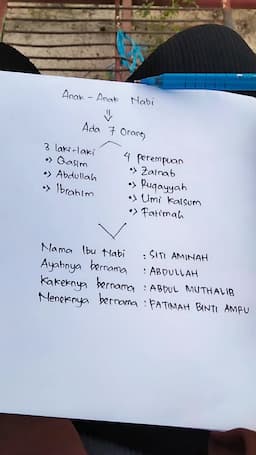 Anak - Anak Nabi
⇓
Ada 7 Orang
3 laki-laki
•> Qasim
•> Abdullah
•> Ibrahim
4 perempuan
•> Zainab
•> Ruqayyah
•> Umi Kalsum
•> Fatimah
Nama Ibu Nabi : SITI AMINAH
Ayahnya bernama : ABDULLAH
Kakeknya bernama : ABDUL MUTHALIB
Neneknya bernama : FATIMAH BINTI AMRU